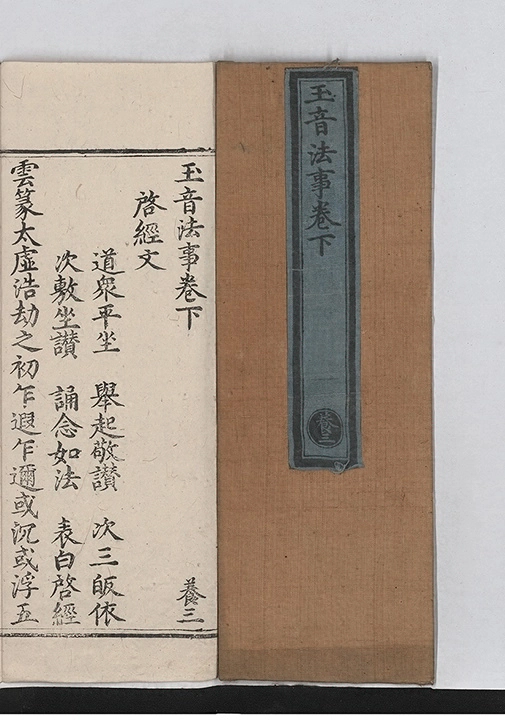 玉音法事卷下
養三
玉音法事卷下 養三
啓經文
道眾平坐 舉起敬讃 次三皈依
次敷坐讃 誦念如法 表白啓經
雲篆太虛浩劫之初乍遐乍邇或沉或浮五